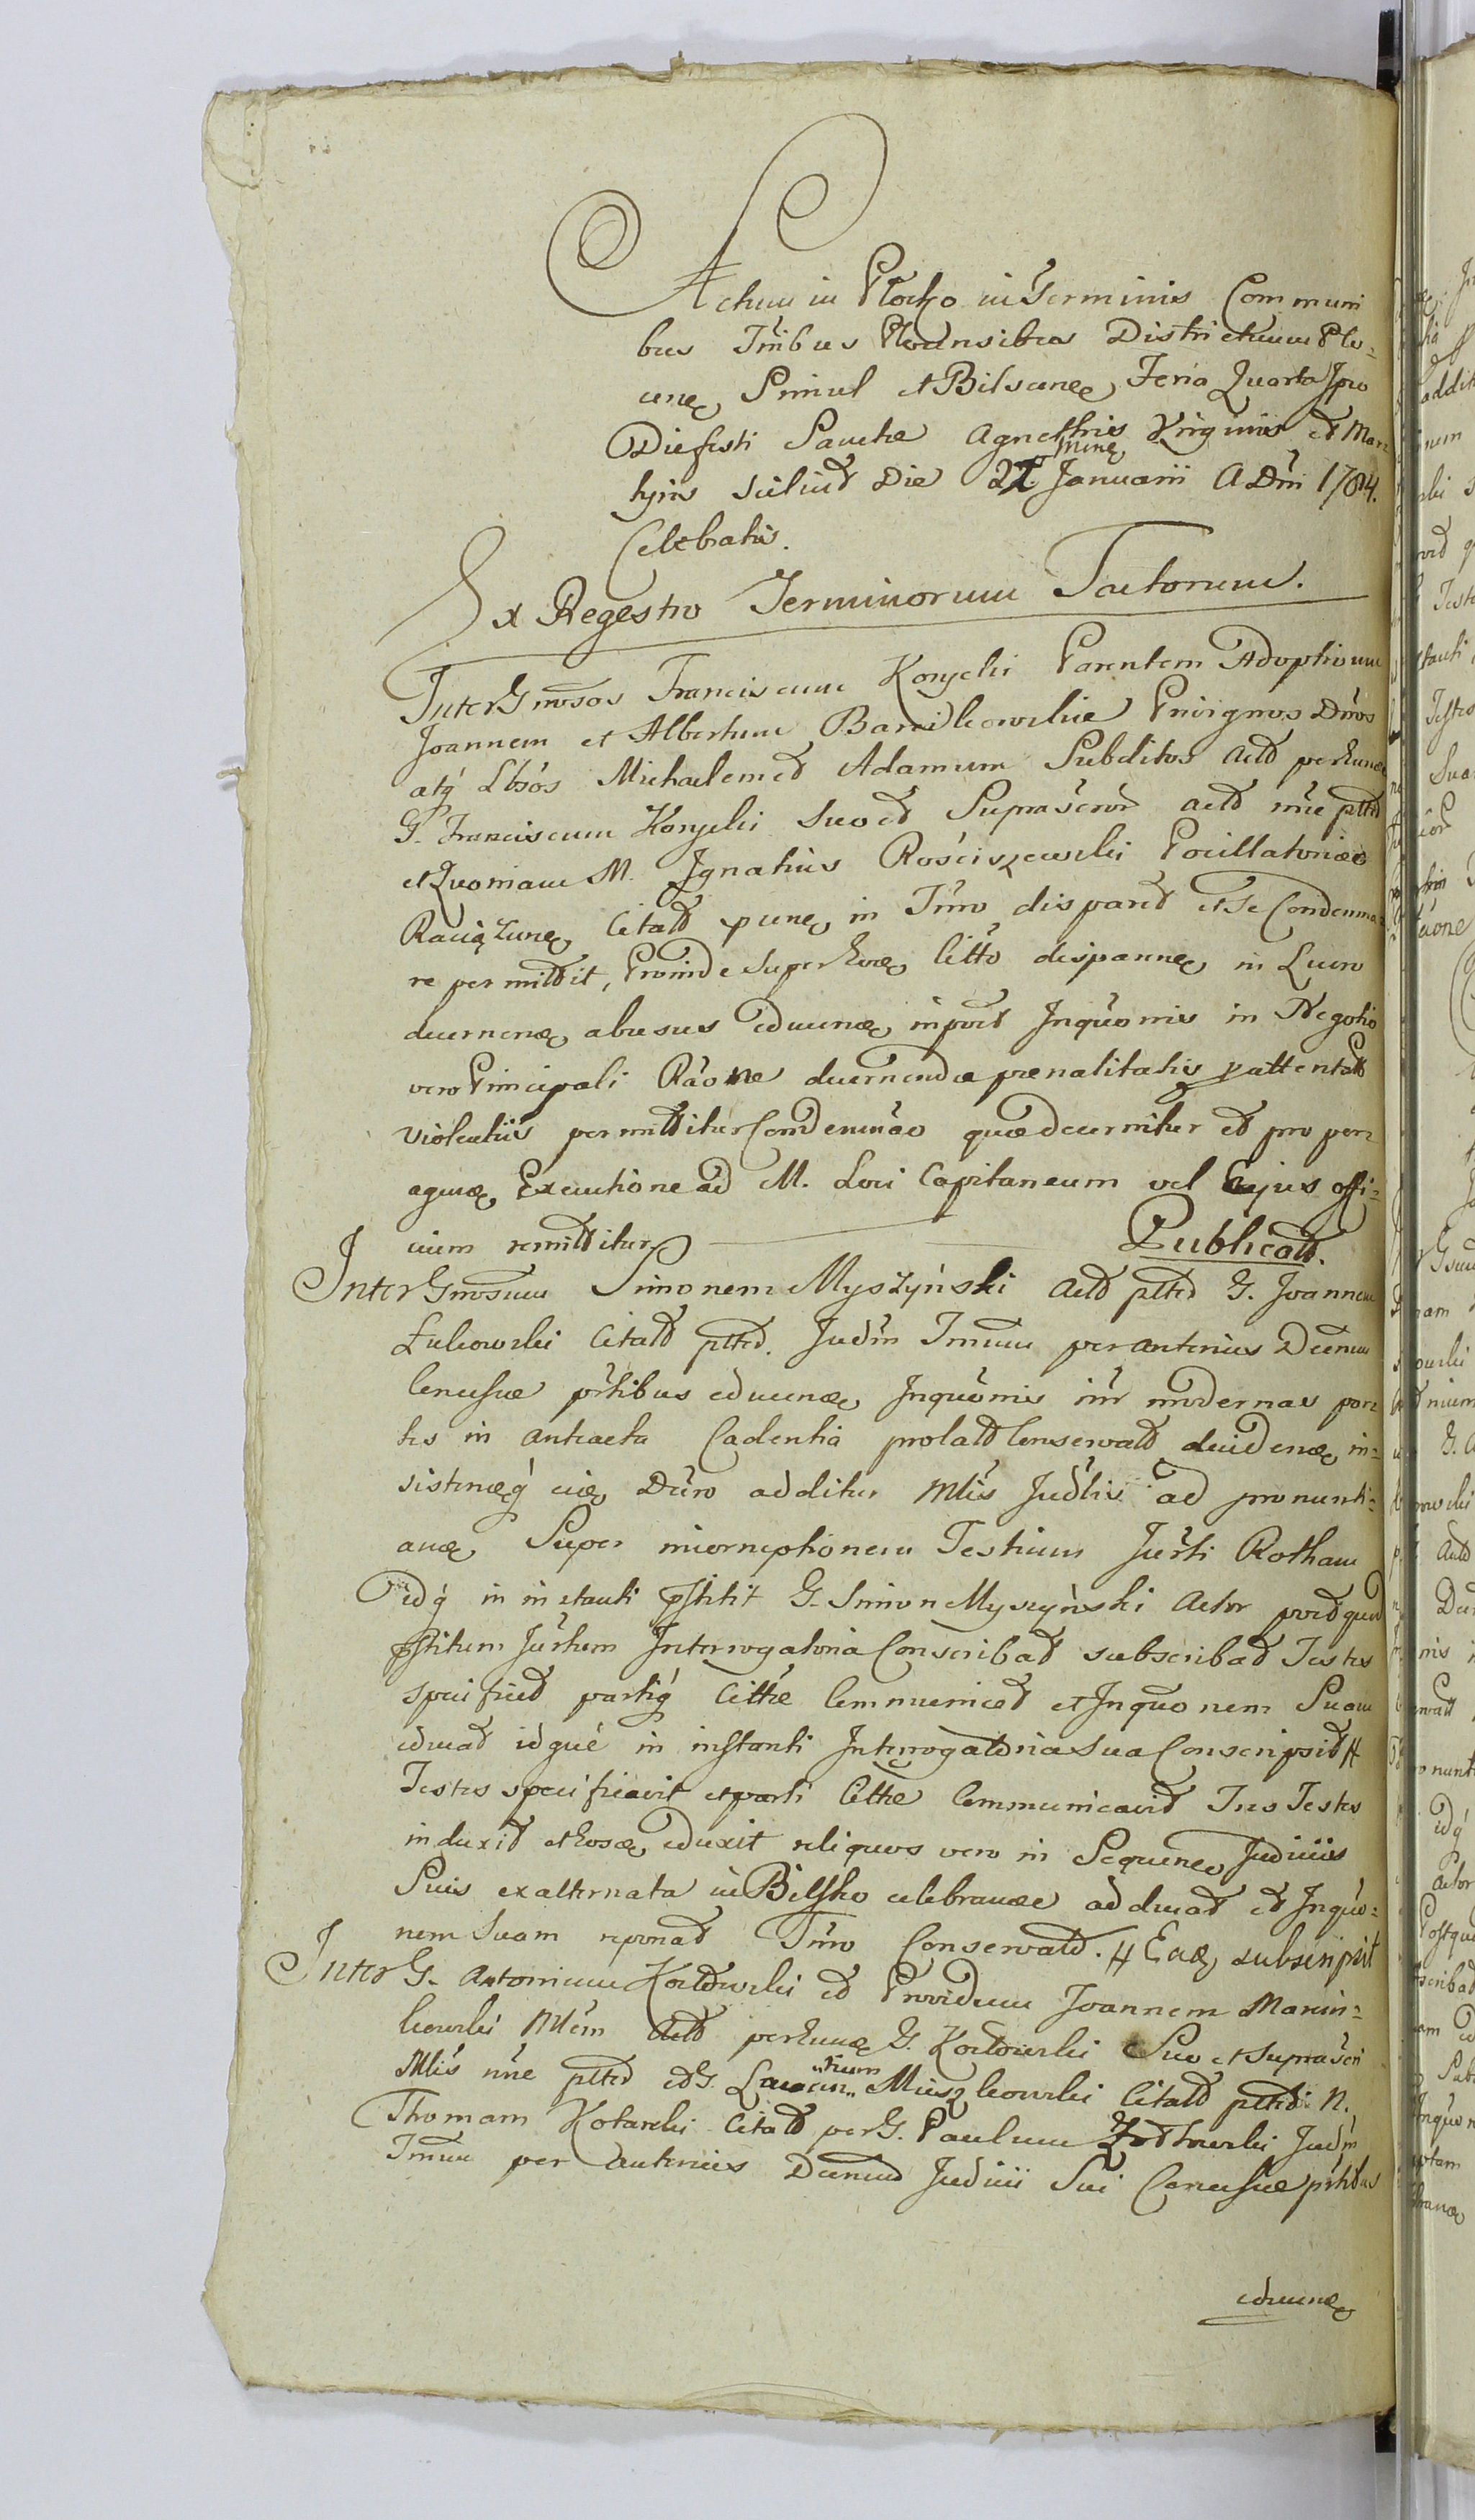 Actum in Płocko in Terminis Communi
bus Tribus Plocensibus Districtuum Plo-
cen Simul et Bilscen Feria Quarta Ipso
Die festi Sanctae Agnethis Virginis et Mar-
tyris scilicet Die 21 mens Januarii A Dni 1784.
Celebratis.
Ex Regestro Terminorum Tactorum.
Inter Gnosos Franciscum Konycki Parentem Adoptivum
Joannem et Albertum Barcikowskie Privignos Duos
atq Lbsos Michaelem et Adamum Subditos Act per eund
G. Franciscum Konycki suo et Suprascrior act nne ptted
et Quoniam M. Ignatius Rościszewski Pocillatorides
Raciążen Citat pune in Trno disparet et se Condemna-
re permittit, Proinde super eode Citto dispanne in Lucro
decernend abusus educend inport Inquonis in Negotio
vero Principali Raone decernendae paenalitatis pattentatt
violentiis permittitur Condemnao quae decernitur et pro per-
agend Executione ad M. Loci Capitaneum vel Ejus offi-
cium remittitur Publicatt.
Inter Gnosum Simonem Myszyński Act ptted G. Joannem
Łukowski Citatt ptted. Judm Trnum per anterius Decrum
Concusue prtibus educend Inquonis inr modernas par-
tes in anteacta Cadentia prolatt Conservatt decidend in-
sistendq eid Decro additur Mlis Judlis ad pronunti-
and Super incorruptionem Testium Jurti Rotham
idq in instanti pstitit G. Simon Myszyński Actor postquod
pstitum Jurtum Interrogatoria Conscribat subscribat Testes
specificet partiq Citthe Communicet et Inquonem Suam
educat idque in instanti Interrogatoria sua Conscripsit #
Testes specificavit et parti Citthe Communicavit Tres Testes
induxit et eosd eduxit reliquos vero in Sequend Judiciis
Suis exalternata in Bilsko celebrand adducat et Inquo-
nem Suam reponat Trno Conservatt. # Ead subscripsit
Inter G. Antonium Kozłowski et Providum Joannem Marcin-
kowski Mlem Act per eund G. Kozłowski Suo et supra scri
Mlis nne ptted et G. Laurentium Mieszkowski Citatt ptted i N.
Thomam Kotarski Citatt per G. Paulum Zółtowski Judm
Trnum per anterius Decrum Judicii Sui Concusue prtibus
educend